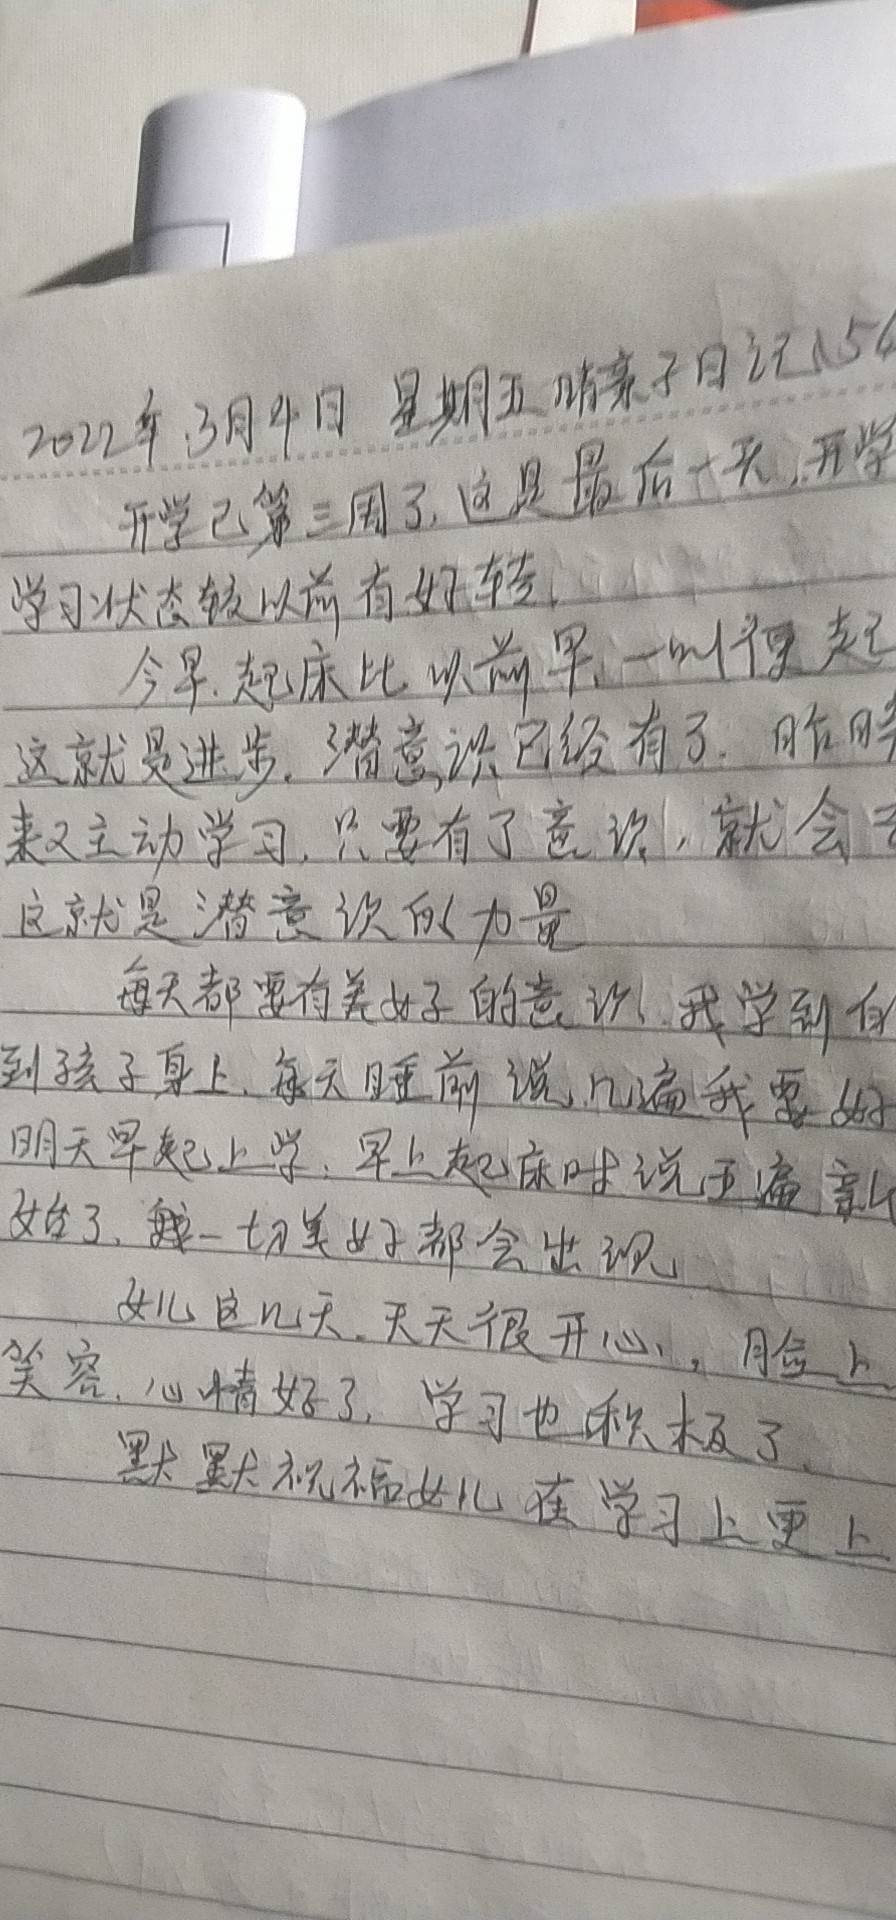 2022年.3月4日 星期五 晴亲子日记154
开学已第三周了,这是最后一天,开学
学习状态较以前有好转.
今早.起床比以前早,一叫便起
这就是进步.潜意识已经有了.昨晚
来又主动学习.只要有了意识,就会
这就是潜意识的力量
每天都要有美好的意识.我学到
到孩子身上.每天睡前说几遍我要好
明天早起上学.早上起床时说五遍新
始了、一切美好都会出现
女儿这几天.天天很开心,脸上
笑容.心情好了,学习也积极了.
默默祝福女儿在学习上更上